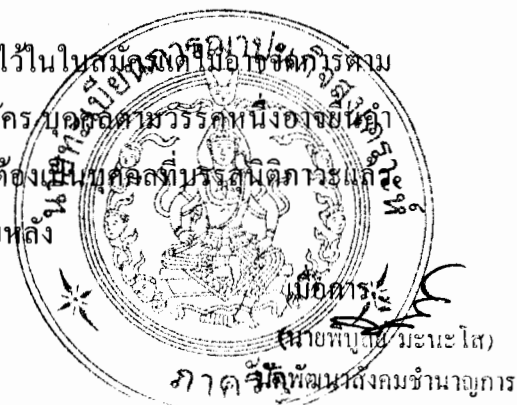 ไว้ในใบสมัคร แต่ไม่อาจจัดการตาม
บุคคลตามวรรคหนึ่งอาจยื่นคำ
ต้องเป็นบุคคลที่บรรลุนิติภาวะแล้ว
หลัง
นายทะเบียนการฌาปนกิจสงเคราะห์
(นายพิบูลย์ มะนะโส)
นักพัฒนาสังคมชำนาญการ